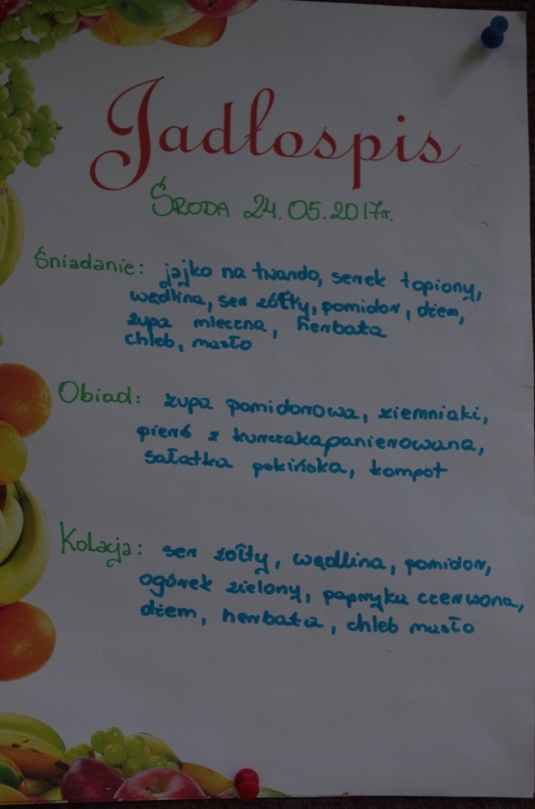 Jadłospis
ŚRODA 24.05.2017r.
Śniadanie: jajko na twardo, serek topiony,
wędlina, ser żółty, pomidor, dżem,
zupa mleczna, herbata
chleb, masło
Obiad: zupa pomidorowa, ziemniaki,
pierś z kurczaka panierowana,
sałatka pekińska, kompot
Kolacja: ser żółty, wędlina, pomidor,
ogórek zielony, papryka czerwona,
dżem, herbata, chleb masło